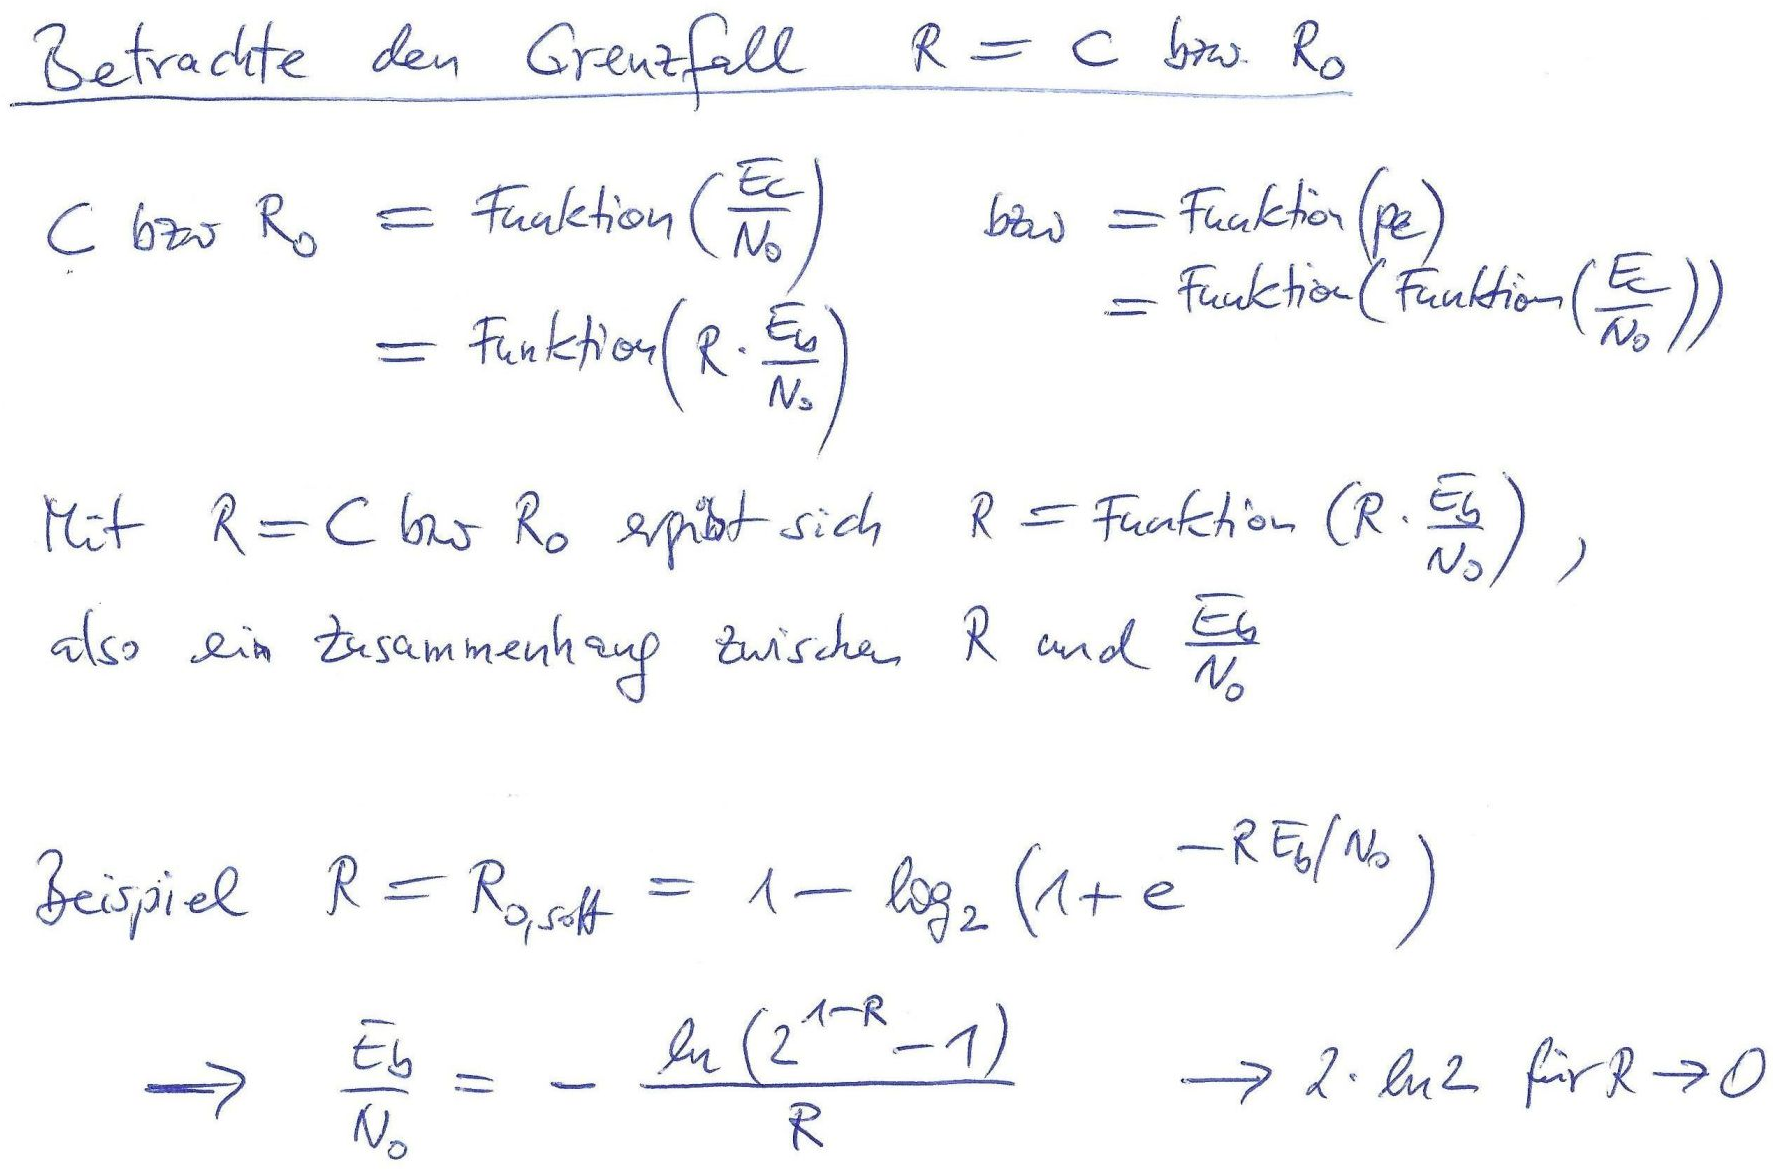 Betrachte den Grenzfall R = C bzw. R₀
C bzw R₀ = Funktion (E_c/N₀) bzw = Funktion (p_e)
= Funktion (Funktion (E_c/N₀))
= Funktion (R · E_b/N₀)
Mit R = C bzw R₀ ergibt sich R = Funktion (R · E_b/N₀),
also ein Zusammenhang zwischen R und E_b/N₀
Beispiel R = R₀,soft = 1 − log₂ (1 + e^(−R E_b/N₀))
→ E_b/N₀ = − ln (2^(1−R) − 1) / R → 2 · ln 2 für R → 0